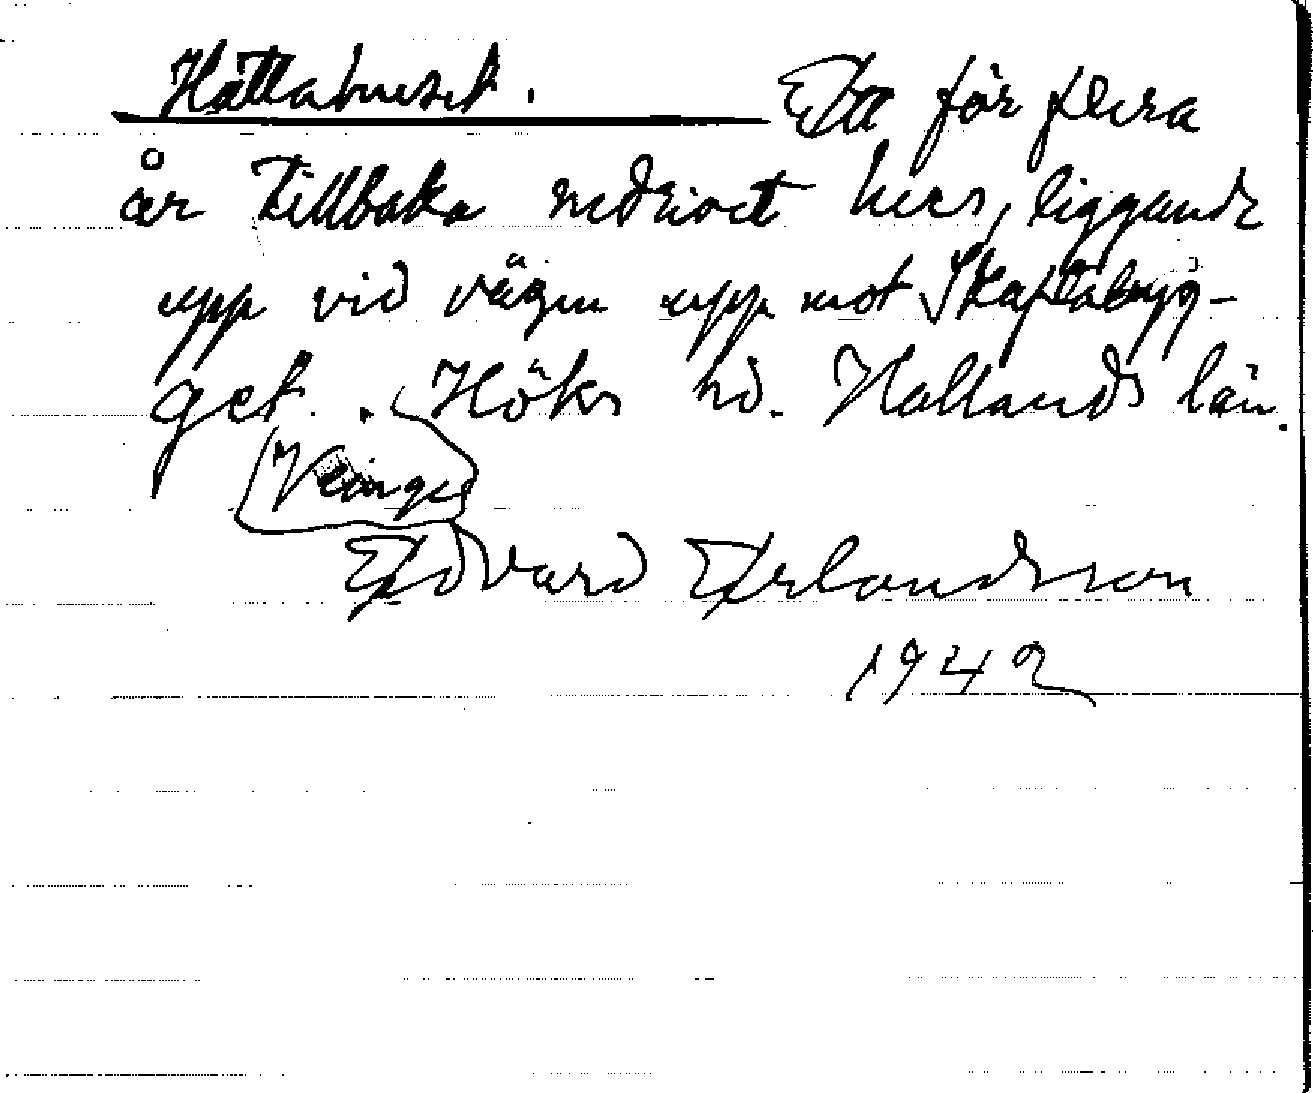 Hattahuset. Ett för flera
år tillbaka nedrivet hus, liggande
upp vid vägen upp mot Skaftabyg-
get. Höks hd. Hallands län.
Veinge
Edvard Erlandsson
1942